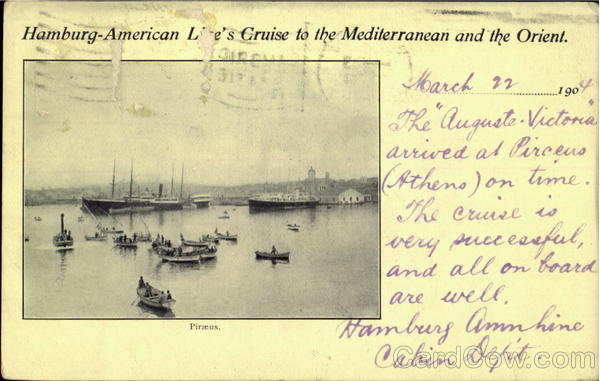 Hamburg-American Li e's Cruise to the Mediterranean and the Orient.
March 22 1904
The "Auguste-Victoria"
arrived at Pirceus
(Athens) on time.
The cruise is
very successful,
and all on board
are well.
Hamburg Amn Line
Cabin Dep't.
Piræus.
CardCow.com